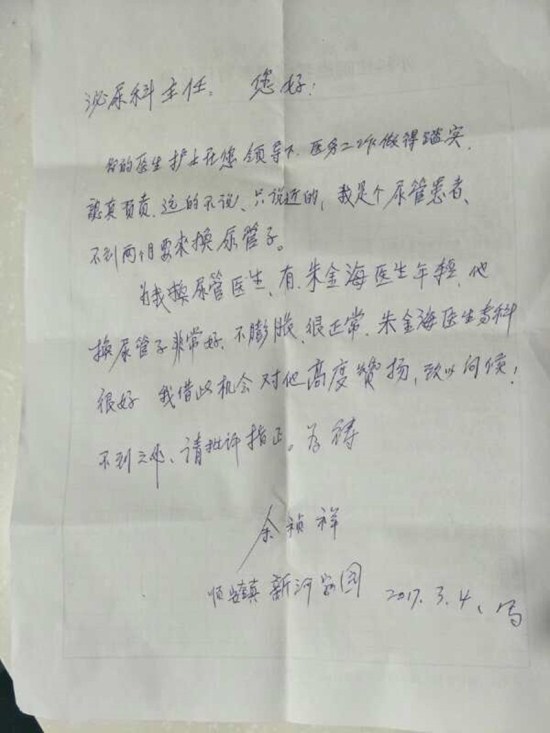 泌尿科主任, 您好!
的医生护士在您领导下, 医务工作做得踏实,
認真負责, 远的不说、只说近的, 我是个尿管患者、
不到两个月要来换尿管子。
为我换尿管医生, 有朱金海医生年轻, 他
换尿管子非常好, 不膨胀、很正常, 朱金海医生
很好 我借此机会对他高度赞扬, 致以问候!
不到之处、请批评指正。为祷
余祯祥
镇新河家园 2017.3.4、写